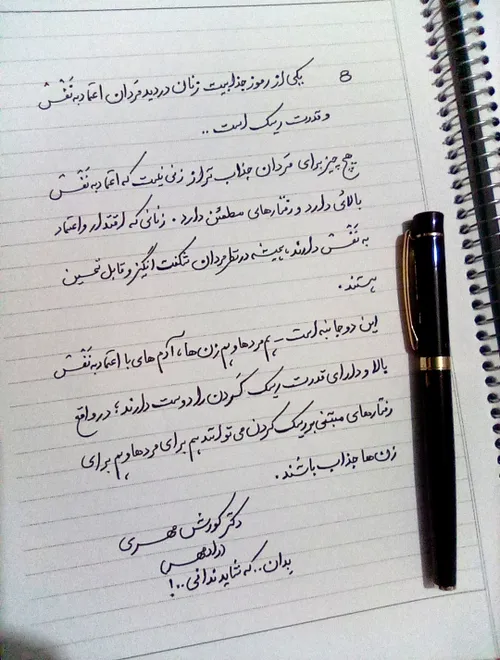 8 یکی از رموز جذابیت زنان در دید مردان اعتماد به نَفْس
و قدرت ریسک است ..
هیچ چیز برای مَردان جذاب تر از زنی نیست که اعتماد به نَفْس
بالائی دارد و رفتارهای مطمئن دارد. زنانی که اقتدار و اعتماد
به نَفْس دارند، همیشه در نظر مردان شگفت انگیز و قابل تحسین
هستند.
این دو جانبه است - هم مردها و هم زن ها، آدم های با اعتماد به نَفْس
بالا و دارای قدرت ریسک کَردن را دوست دارند؛ در واقع
رفتارهای مبتنی بر ریسک کردن می توانند هم برای مردها و هم برای
زن ها جذاب باشند.
دکتر کورش مهری
بدان.. که شاید ندانی..!